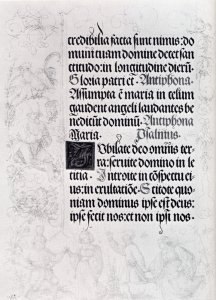 credibilia facta sunt nimis: do
mum tuam domine decet san
ctitudo: in longitudine dierū.
Gloria patri et. Antiphona.
Assumpta ē maria in celum
gaudent angeli laudantes be
nedicūt dominū. Antiphona
Maria. Psalmus.
Jubilate deo omnis ter
ra: seruite domino in le
ticia. Introite in cōspectu ei
us: in exultatiōe. Scitote quo
niam dominus ipse est deus:
ipse fecit nos: et non ipsi nos.